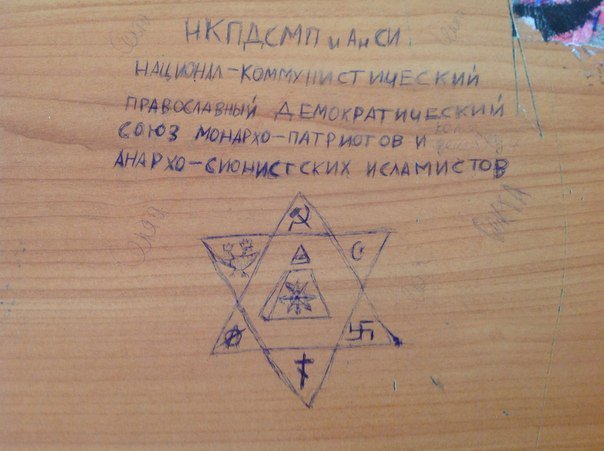 НКПДСМПиАнСИ.
НАЦИОНАЛ-КОММУНИСТИЧЕСКИЙ
ПРАВОСЛАВНЫЙ ДЕМОКРАТИЧЕСКИЙ
СОЮЗ МОНАРХО-ПАТРИОТОВ И
АНАРХО-СИОНИСТСКИХ ИСЛАМИСТОВ